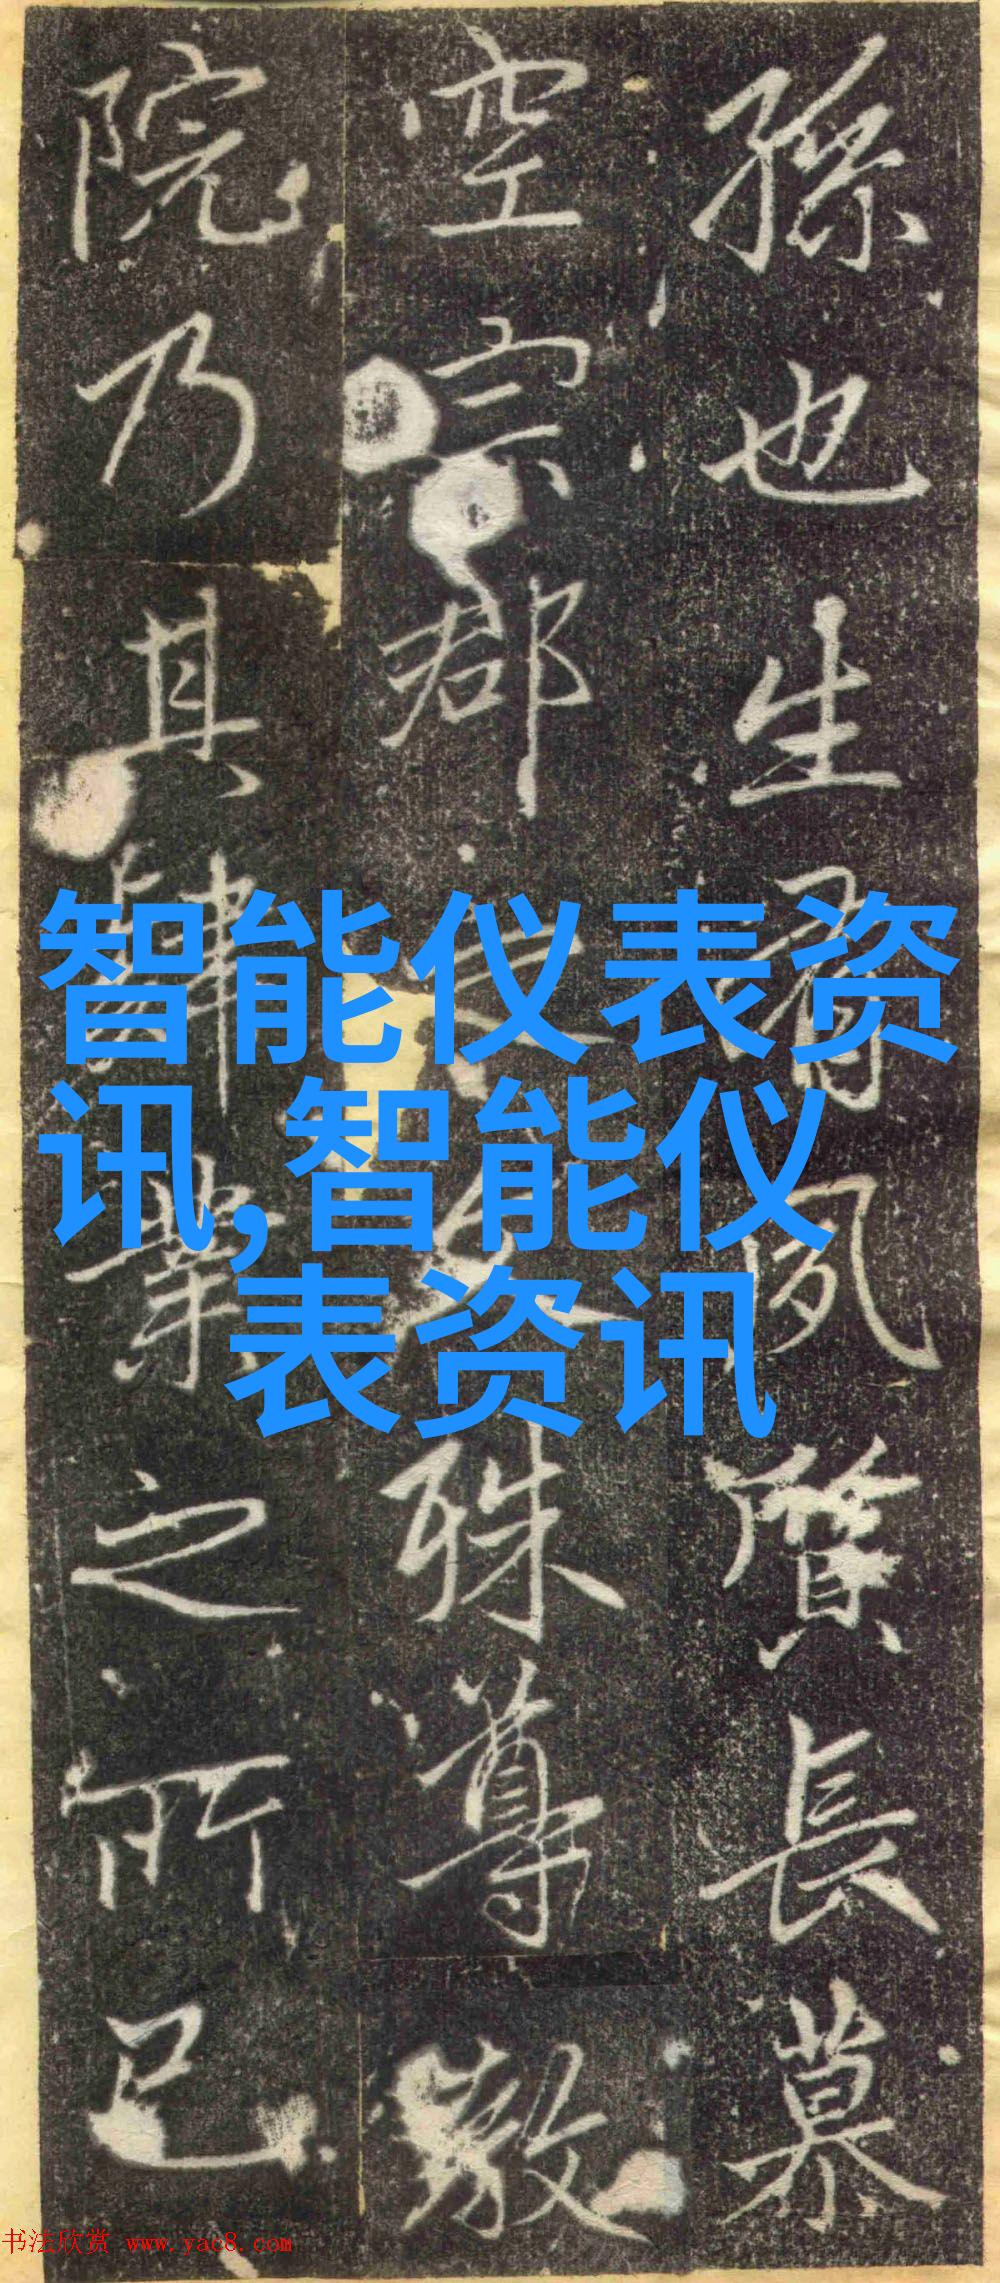 孫也生有夙賢長慕
空宗郡
殊尊敬
院乃其肆業之所已
智能仪表资
讯,智能仪
表资讯
书法欣赏 www.yac8.com